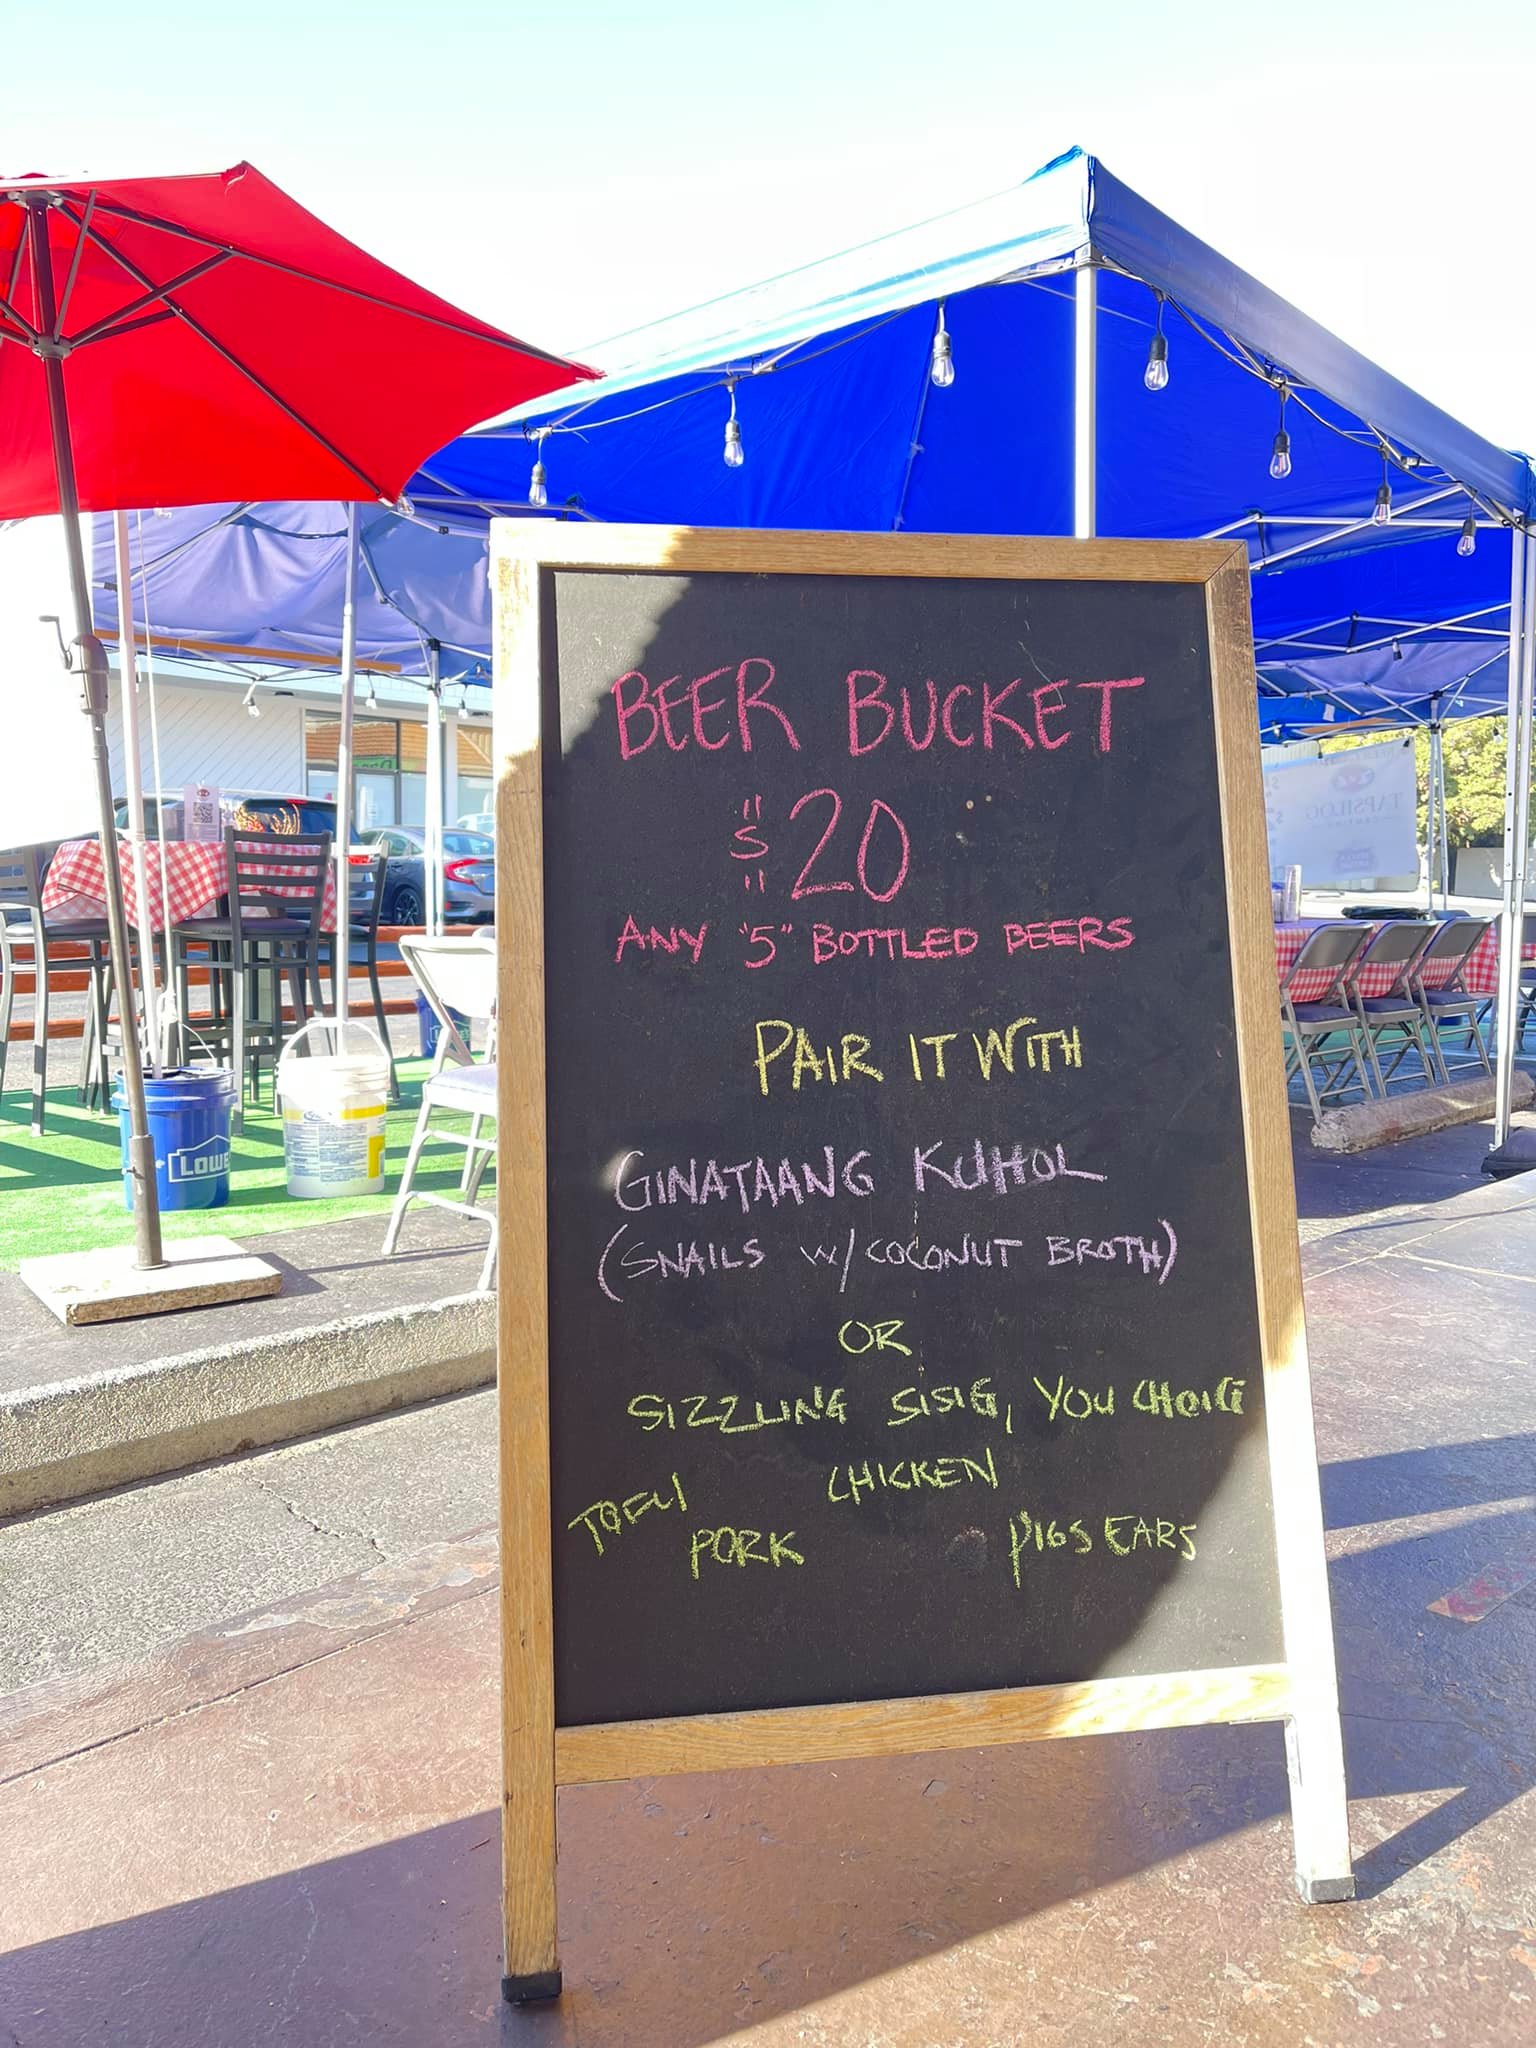 BEER BUCKET
$20
ANY "5" BOTTLED BEERS
PAIR IT WITH
GINATAANG KUHOL
(SNAILS W/ COCONUT BROTH)
OR
SIZZLING SISIG, YOU CHOICE
CHICKEN
TOFU
PORK
PIGS EARS
LOWE
TAPSILOG